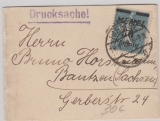 Drucksache!
MEMEL
Herrn
Bruno Horst
Bautzen (Sachsen)
Gerberstr 24